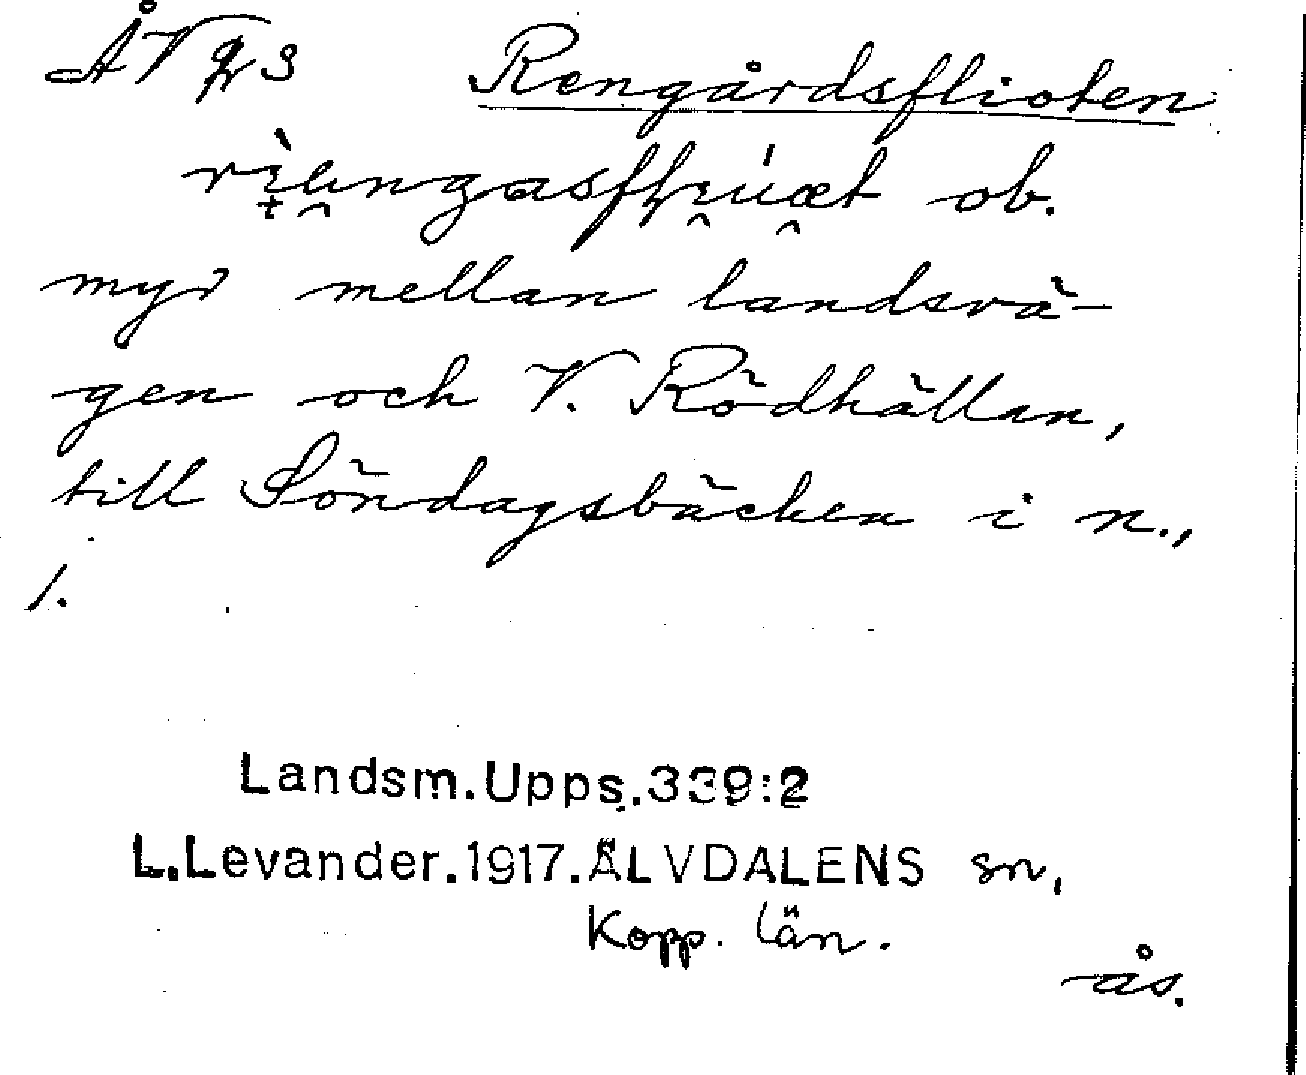 ÅV 3 Rengårdsflioten
ob.
myr mellan landsvä-
gen och V. Rödhällan,
till Söndagsbäcken i n.,
1.
Landsm.Upps.339:2
L.Levander.1917.ÄLVDALENS sn,
Kopp. län.
ås.